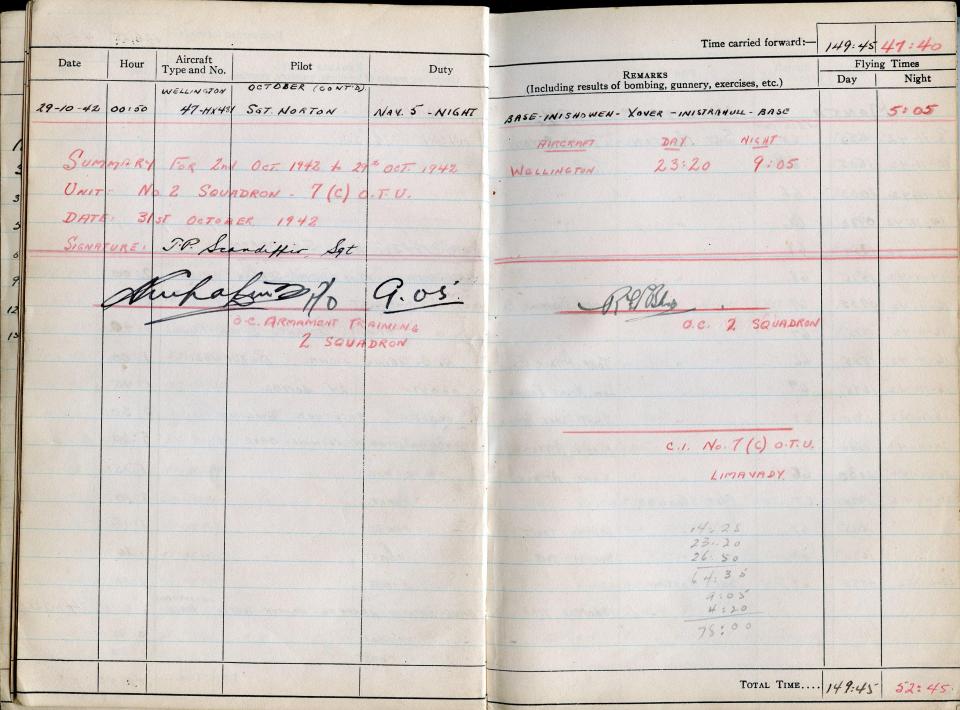 Time carried forward:— 149:45 47:40
Date Hour Aircraft Type and No. Pilot Duty
REMARKS (Including results of bombing, gunnery, exercises, etc.) Flying Times Day Night
WELLINGTON OCTOBER (CONT'D)
29-10-42 00:50 SGT. NORTON NAV. 5 - NIGHT
BASE - INISHOWEN - XOVER - INISTRAHULL - BASE 5:05
AIRCRAFT DAY NIGHT
WELLINGTON 23:20 9:05
SUMMARY FOR 2nd OCT 1942 to 29th OCT. 1942
UNIT: No 2 SQUADRON - 7 (C) O.T.U.
DATE: 31ST OCTOBER 1942
SIGNATURE: J.P. Scandiffio, Sgt
O.C. ARMAMENT TRAINING
2 SQUADRON
O.C. 2 SQUADRON
C.I. No. 7 (C) O.T.U.
LIMAVADY
14:25
23:20
26:50
64:35
9:05
4:20
78:00
TOTAL TIME.... 149:45 52:45